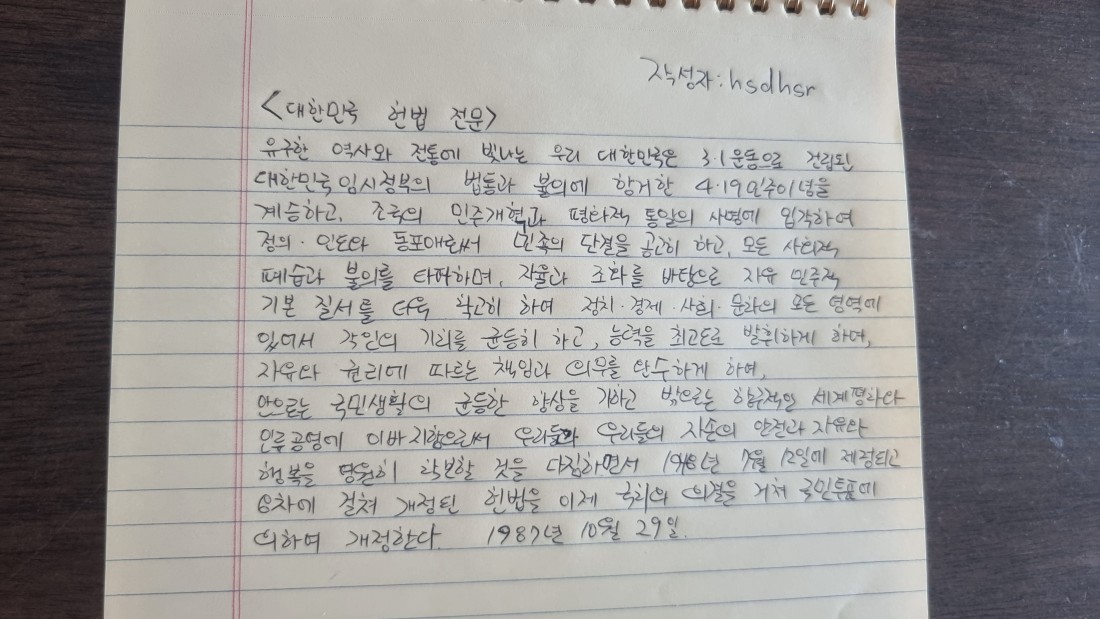 작성자: hsdhsr
<대한민국 헌법 전문>
유구한 역사와 전통에 빛나는 우리 대한민국은 3·1운동으로 건립된
대한민국임시정부의 법통과 불의에 항거한 4·19민주이념을
계승하고, 조국의 민주개혁과 평화적 통일의 사명에 입각하여
정의·인도와 동포애로써 민족의 단결을 공고히 하고, 모든 사회적
폐습과 불의를 타파하며, 자율과 조화를 바탕으로 자유 민주적
기본 질서를 더욱 확고히 하여 정치·경제·사회·문화의 모든 영역에
있어서 각인의 기회를 균등히 하고, 능력을 최고도로 발휘하게 하며,
자유와 권리에 따르는 책임과 의무를 완수하게 하여,
안으로는 국민생활의 균등한 향상을 기하고 밖으로는 항구적인 세계평화와
인류공영에 이바지함으로써 우리들과 우리들의 자손의 안전과 자유와
행복을 영원히 확보할 것을 다짐하면서 7월 12일에 제정되고
8차에 걸쳐 개정된 헌법을 이제 국회의 의결을 거쳐 국민투표에
의하여 개정한다. 1987년 10월 29일.